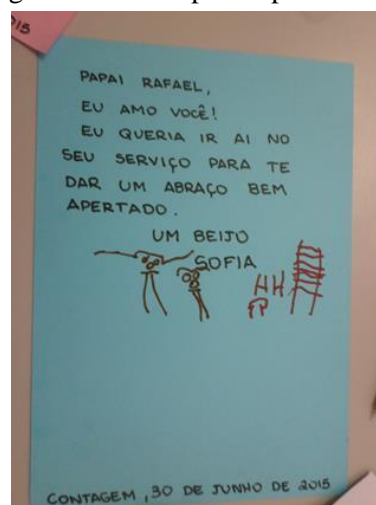 PAPAI RAFAEL,
EU AMO VOCÊ!
EU QUERIA IR AI NO
SEU SERVIÇO PARA TE
DAR UM ABRAÇO BEM
APERTADO.
UM BEIJO
SOFIA
CONTAGEM, 30 DE JUNHO DE 2015